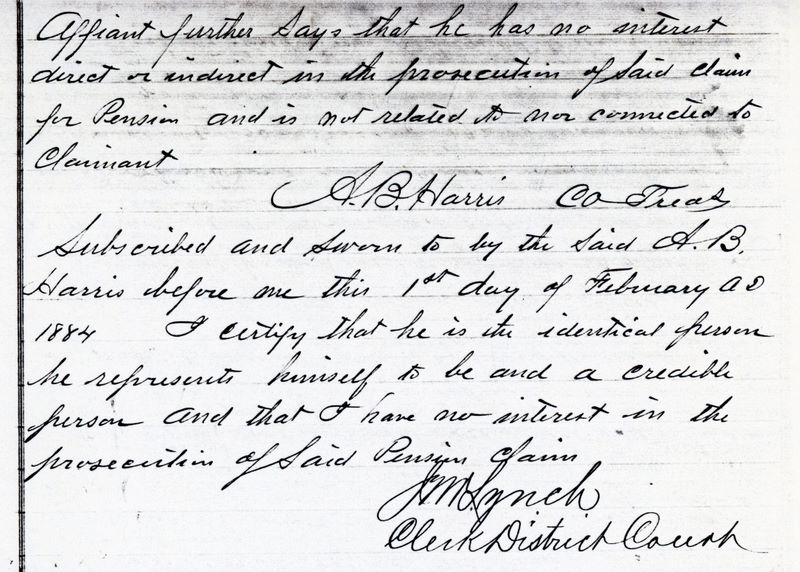 Affiant further Says that he has no interest
direct or indirect in the prosecution of Said Claim
for Pension and is not related to nor connected to
Claimant
A. B. Harris Co Treas
Subscribed and Sworn to by the Said A. B.
Harris before me this 1st day of February A D
1884 I certify that he is the identical person
he represents himself to be and a credible
person and that I have no interest in the
prosecution of Said Pension Claim
J M Lynch
Clerk District Court